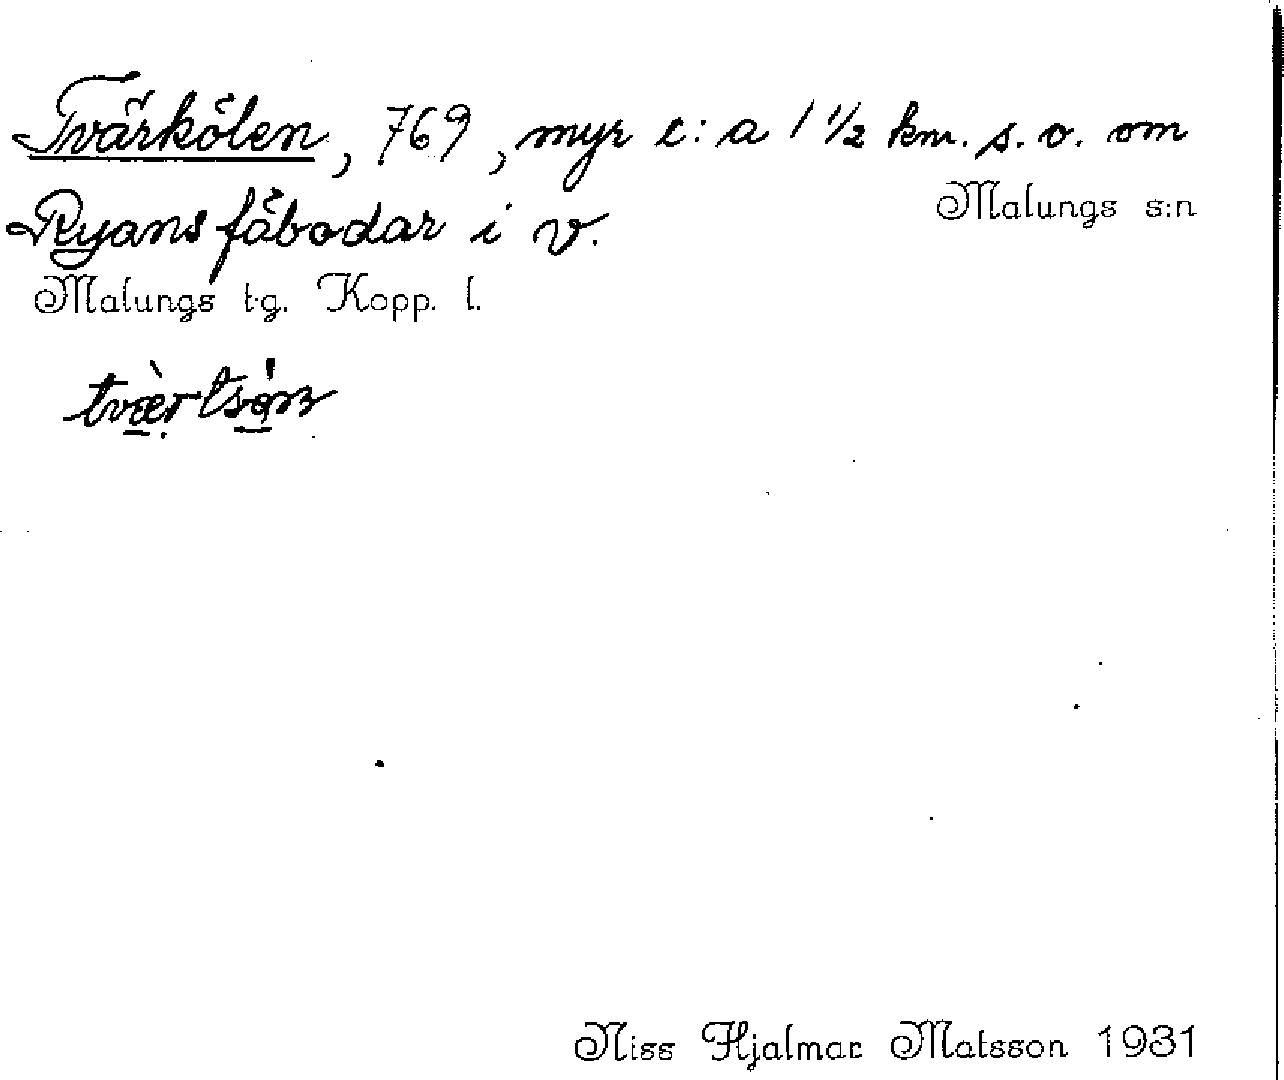 Tvärkölen, 769, myr c:a 1 1/2 km. s. v. om
Malungs s:n
Ryans fäbodar i v.
Malungs tg. Kopp. l.
Niss Hjalmar Matsson 1931